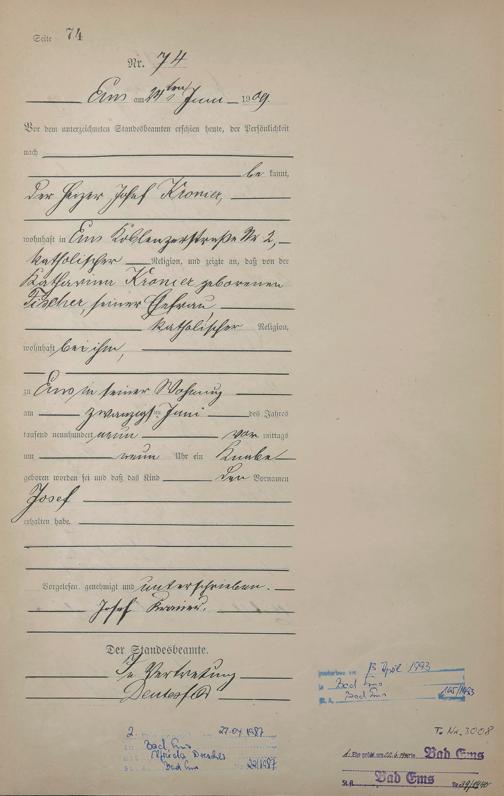 Seite 74
Nr. 74
Ems am 24ten Juni 1909.
Vor dem unterzeichneten Standesbeamten erschien heute, der Persönlichkeit
nach
be kannt,
der Heizer Josef Kronier,
wohnhaft in Ems Koblenzerstraße Nr 2,
katholischer Religion, und zeigte an, daß von der
Katharina Kronier geborenen
Fischer, seiner Ehefrau
katholischer Religion,
wohnhaft bei ihm,
zu Ems in seiner Wohnung
am zwanzigsten Juni des Jahres
tausend neunhundert neun vor mittags
um neun Uhr ein Knabe
geboren worden sei und daß das Kind den Vornamen
Josef
erhalten habe.
Vorgelesen, genehmigt und unterschrieben.
Josef
Der Standesbeamte.
In Vertretung
gestorben am April 1993
Bad Ems
Bad Ems 165/1993
2. 27.04.1987
Bad Ems
Bad Ems 22/1987
To. Nr. 3008
Bad Ems
St. A. Bad Ems Nr. 39/1940